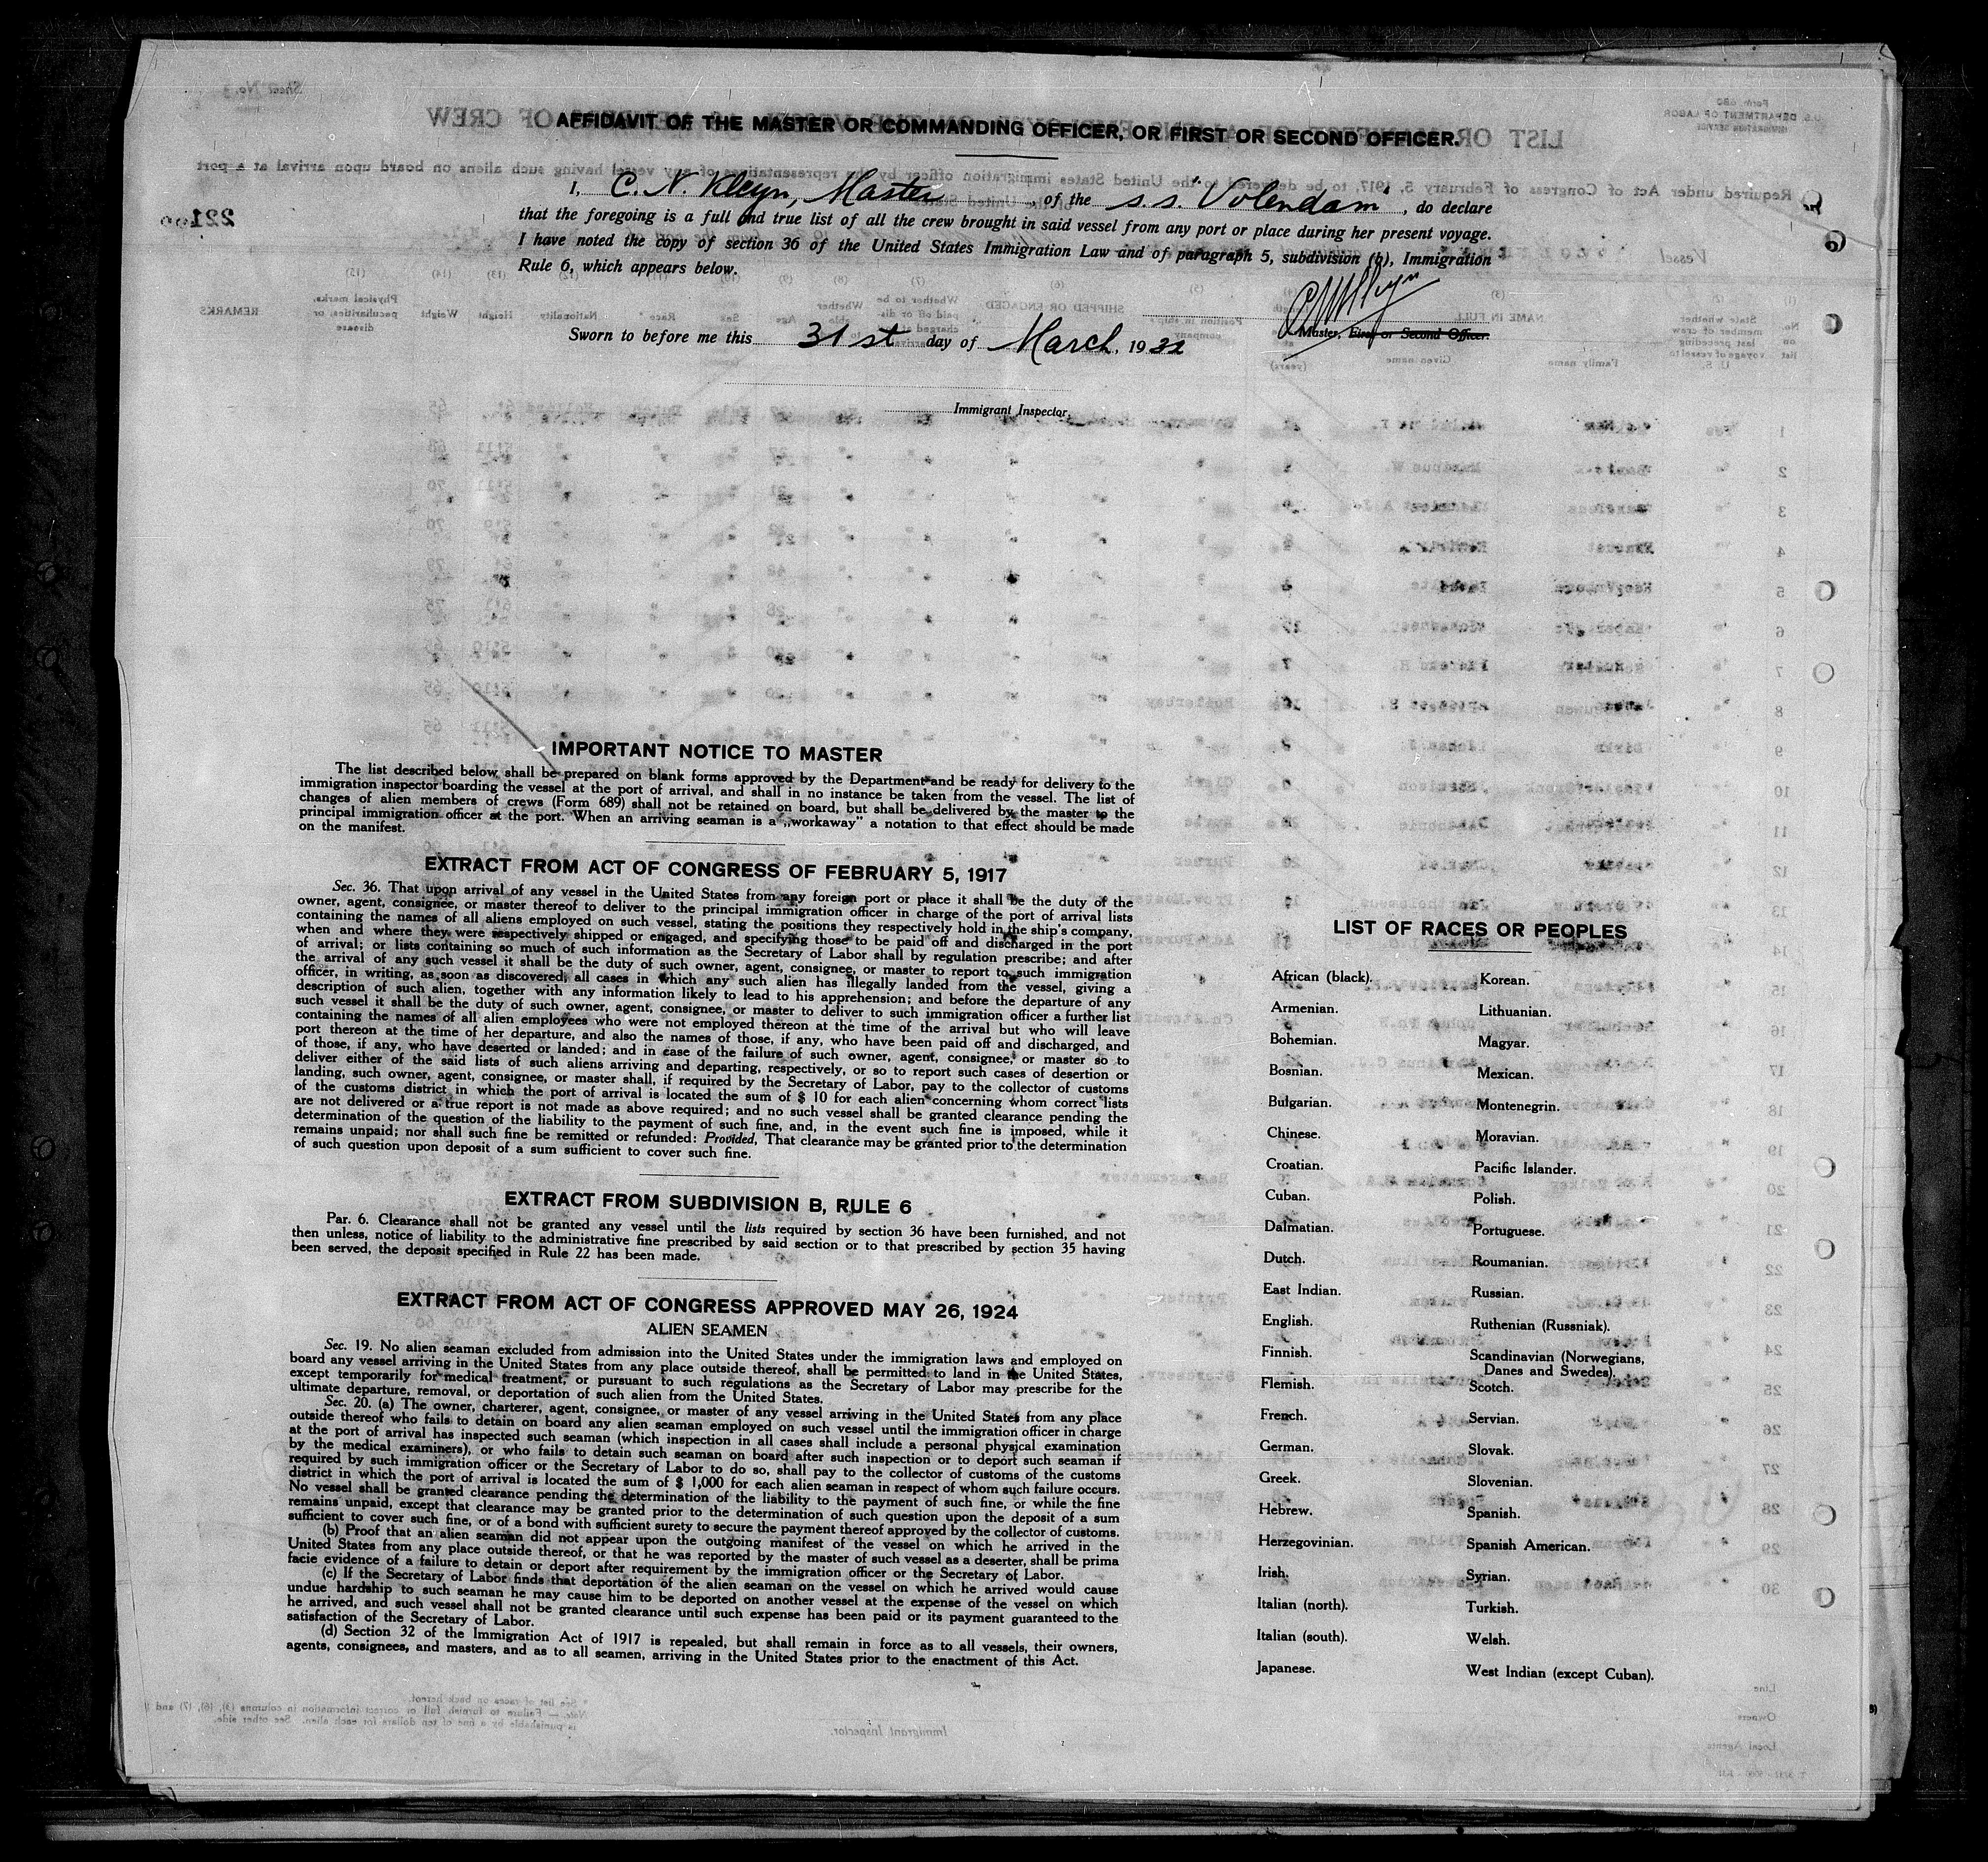 AFFIDAVIT OF THE MASTER OR COMMANDING OFFICER, OR FIRST OR SECOND OFFICER.
I, C. N. Kleyn, Master, of the s.s. Volendam, do declare
that the foregoing is a full and true list of all the crew brought in said vessel from any port or place during her present voyage.
I have noted the copy of section 36 of the United States Immigration Law and of paragraph 5, subdivision (b), Immigration
Rule 6, which appears below.
Master, First or Second Officer.
Sworn to before me this 31st day of March, 1932
Immigrant Inspector.
IMPORTANT NOTICE TO MASTER
The list described below shall be prepared on blank forms approved by the Department and be ready for delivery to the
immigration inspector boarding the vessel at the port of arrival, and shall in no instance be taken from the vessel. The list of
changes of alien members of crews (Form 689) shall not be retained on board, but shall be delivered by the master to the
principal immigration officer at the port. When an arriving seaman is a „workaway" a notation to that effect should be made
on the manifest.
EXTRACT FROM ACT OF CONGRESS OF FEBRUARY 5, 1917
Sec. 36. That upon arrival of any vessel in the United States from any foreign port or place it shall be the duty of the
owner, agent, consignee, or master thereof to deliver to the principal immigration officer in charge of the port of arrival lists
containing the names of all aliens employed on such vessel, stating the positions they respectively hold in the ship's company,
when and where they were respectively shipped or engaged, and specifying those to be paid off and discharged in the port
of arrival; or lists containing so much of such information as the Secretary of Labor shall by regulation prescribe; and after
the arrival of any such vessel it shall be the duty of such owner, agent, consignee, or master to report to such immigration
officer, in writing, as soon as discovered, all cases in which any such alien has illegally landed from the vessel, giving a
description of such alien, together with any information likely to lead to his apprehension; and before the departure of any
such vessel it shall be the duty of such owner, agent, consignee, or master to deliver to such immigration officer a further list
containing the names of all alien employees who were not employed thereon at the time of the arrival but who will leave
port thereon at the time of her departure, and also the names of those, if any, who have been paid off and discharged, and
of those, if any, who have deserted or landed; and in case of the failure of such owner, agent, consignee, or master so to
deliver either of the said lists of such aliens arriving and departing, respectively, or so to report such cases of desertion or
landing, such owner, agent, consignee, or master shall, if required by the Secretary of Labor, pay to the collector of customs
of the customs district in which the port of arrival is located the sum of $ 10 for each alien concerning whom correct lists
are not delivered or a true report is not made as above required; and no such vessel shall be granted clearance pending the
determination of the question of the liability to the payment of such fine, and, in the event such fine is imposed, while it
remains unpaid; nor shall such fine be remitted or refunded: Provided, That clearance may be granted prior to the determination
of such question upon deposit of a sum sufficient to cover such fine.
EXTRACT FROM SUBDIVISION B, RULE 6
Par. 6. Clearance shall not be granted any vessel until the lists required by section 36 have been furnished, and not
then unless, notice of liability to the administrative fine prescribed by said section or to that prescribed by section 35 having
been served, the deposit specified in Rule 22 has been made.
EXTRACT FROM ACT OF CONGRESS APPROVED MAY 26, 1924
ALIEN SEAMEN
Sec. 19. No alien seaman excluded from admission into the United States under the immigration laws and employed on
board any vessel arriving in the United States from any place outside thereof, shall be permitted to land in the United States,
except temporarily for medical treatment, or pursuant to such regulations as the Secretary of Labor may prescribe for the
ultimate departure, removal, or deportation of such alien from the United States.
Sec. 20. (a) The owner, charterer, agent, consignee, or master of any vessel arriving in the United States from any place
outside thereof who fails to detain on board any alien seaman employed on such vessel until the immigration officer in charge
at the port of arrival has inspected such seaman (which inspection in all cases shall include a personal physical examination
by the medical examiners), or who fails to detain such seaman on board after such inspection or to deport such seaman if
required by such immigration officer or the Secretary of Labor to do so, shall pay to the collector of customs of the customs
district in which the port of arrival is located the sum of $ 1,000 for each alien seaman in respect of whom such failure occurs.
No vessel shall be granted clearance pending the determination of the liability to the payment of such fine, or while the fine
remains unpaid, except that clearance may be granted prior to the determination of such question upon the deposit of a sum
sufficient to cover such fine, or of a bond with sufficient surety to secure the payment thereof approved by the collector of customs.
(b) Proof that an alien seaman did not appear upon the outgoing manifest of the vessel on which he arrived in the
United States from any place outside thereof, or that he was reported by the master of such vessel as a deserter, shall be prima
facie evidence of a failure to detain or deport after requirement by the immigration officer or the Secretary of Labor.
(c) If the Secretary of Labor finds that deportation of the alien seaman on the vessel on which he arrived would cause
undue hardship to such seaman he may cause him to be deported on another vessel at the expense of the vessel on which
he arrived, and such vessel shall not be granted clearance until such expense has been paid or its payment guaranteed to the
satisfaction of the Secretary of Labor.
(d) Section 32 of the Immigration Act of 1917 is repealed, but shall remain in force as to all vessels, their owners,
agents, consignees, and masters, and as to all seamen, arriving in the United States prior to the enactment of this Act.
LIST OF RACES OR PEOPLES
African (black).
Armenian.
Bohemian.
Bosnian.
Bulgarian.
Chinese.
Croatian.
Cuban.
Dalmatian.
Dutch.
East Indian.
English.
Finnish.
Flemish.
French.
German.
Greek.
Hebrew.
Herzegovinian.
Irish.
Italian (north).
Italian (south).
Japanese.
Korean.
Lithuanian.
Magyar.
Mexican.
Montenegrin.
Moravian.
Pacific Islander.
Polish.
Portuguese.
Roumanian.
Russian.
Ruthenian (Russniak).
Scandinavian (Norwegians,
Danes and Swedes).
Scotch.
Servian.
Slovak.
Slovenian.
Spanish.
Spanish American.
Syrian.
Turkish.
Welsh.
West Indian (except Cuban).